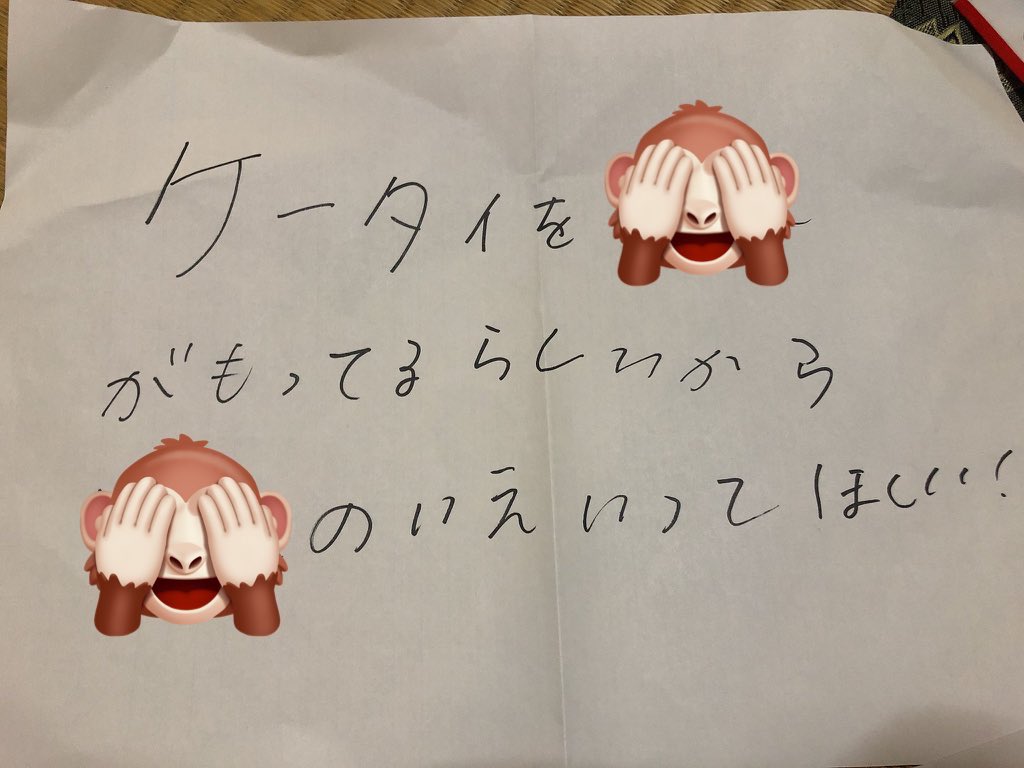 ケータイを
がもってるらしいから
のいえいってほしい!